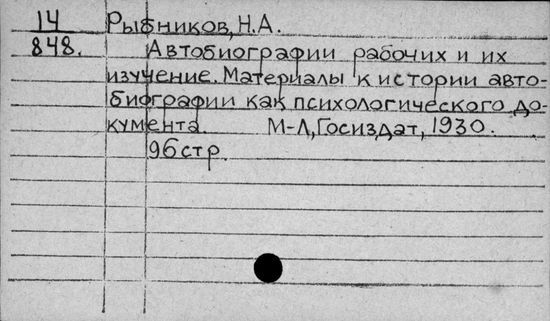 14 Рыбников, Н.А.
848. Автобиографии рабочих и их
изучение. Материалы к истории авто-
биографии как психологического до-
кумента. М-Л, Госиздат, 1930.
96 стр.